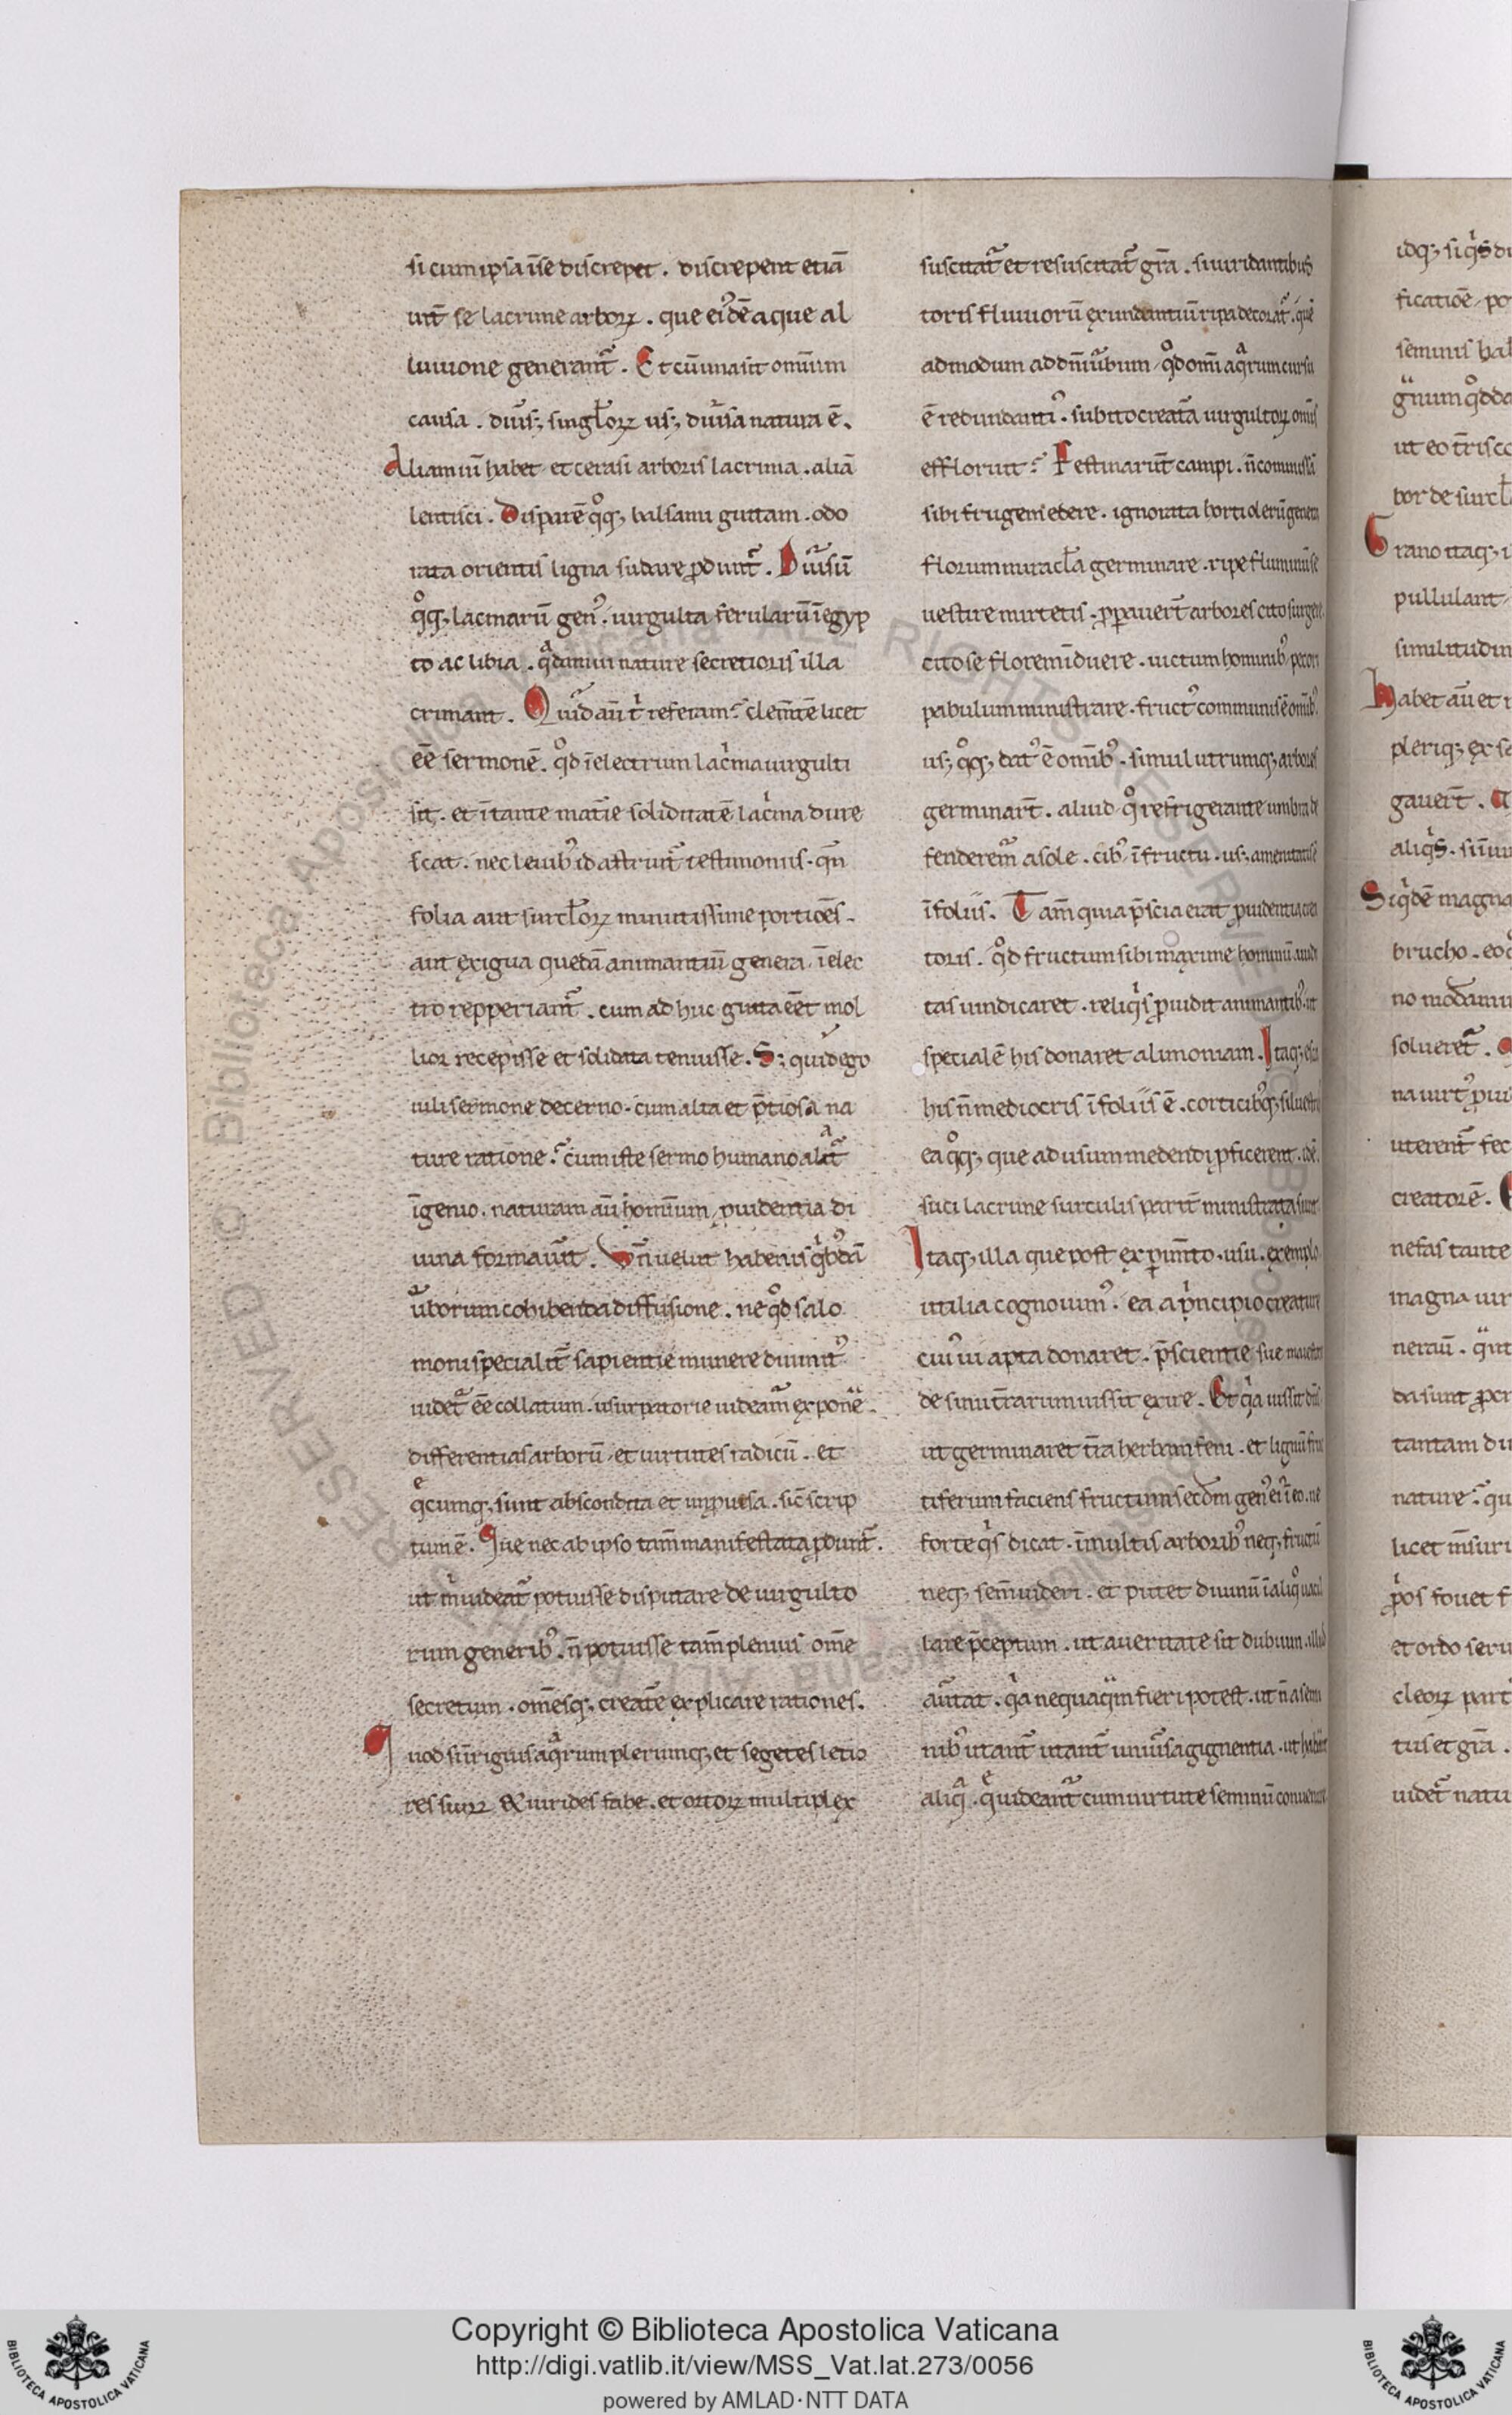 si cum ipsa ĩ se discrepet . discrepent etiã
int̃ se lacrime arborꝝ . que ei᷒dẽ aque al
luuione generant᷑ . Et cũ una sit omnium
causa . diũs; singlorꝝ us; diũsa natura ẽ .
Aliam iũ habet et cerasi arboris lacrima . aliã
lentisci . Disparẽ qͦq; balsami guttam . odo
rata orientis ligna sudare ꝓdunt᷑ . Diũsũ
qͦq; lacrimarũ gen᷒ . uirgulta ferularũ ĩ egyp
to ac libia . qͣdam ui nature secretioris illa
crimant . Quid aũt referam? clem̃te licet
eẽ sermonẽ . qͦd ĩ electrum lac̾ma uirgulti
sit . et ĩ tante mat̃ie soliditatẽ lac̾ma dure
scat . nec leuib᷒ id astruit᷑ testimoniis . qñ
folia aut surclorꝝ minutissime portiões .
aut exigua quedã animantiũ genera . ĩ elec
tro repperiant᷑ . cum adhuc gutta eẽt mol
lior recepisse et solidata tenuisse . S; quid ego
uili sermone decerno . cum alta et p̃tiosa na
ture ratione? cum iste sermo humano alat᷑
ĩgenio . naturam aũ hominum ꝓuidentia di
uina formauit . Uñ uelut habenis qͥb᷒dã
ũborum cohibenda diffusione . ne qͦd salo
moni specialit̃ sapientie munere diuinit᷒
uidet᷑ eẽ collatum . usurpatorie uideam᷑ exponẽ .
differentias arborũ . et uirtutes radicũ . et
qͤcumq; sunt abscondita et improuisa . sic̃ scrip
tum ẽ . Que nec ab ipso tam̃ manifestata ꝓdunt᷑ .
ut m̾ uideat᷑ potuisse disputare de uirgulto
rum generib᷒ . ñ potuisse tam̃ plenius om̃e
secretum . om̃esq; create explicare rationes .
Quod si ĩriguis aqͣrum plerumq; et segetes letio
res surꝝ & uirides fabe . et ortorꝝ multiplex
suscitat᷑ et resuscitat᷑ gr̃a . si uiridantibus
toris fluuiorũ exundantiũ ripa decorat᷑ . quẽ
admodum ad dñi ũbum qͦd omĩ aqͣrum cursu
ẽ redundanti᷒ . subito creata uirgultorꝝ omĩs
efflorunt? Festinarũt campi . ñ commissã
sibi frugem edere . ignorata horti olerũ genera
florum miracla germinare . ripe fluminũ se
uestire mirtetis . ꝓpauert̃ arbores cito surgere
cito se florem ĩduere . uictum hominib᷒ pecori
pabulum ministrare . fruct᷒ communis ẽ omĩb᷒
us; qͦq; dat᷒ ẽ omĩb᷒ . simul utrumq; arbores
germinart̃ . aliud qͦ refrigerante umbra de
fenderem᷑ a sole . cib᷒ ĩ fructu . us; amenitatisẽ
ĩ foliis . Tam̃ quia p̃scia erat ꝓuidentia crea
toris . qͦd fructum sibi maxime hominũ auidi
tas uindicaret . reliqͥs ꝓuidit animantib᷒ . ut
specialẽ his donaret alimoniam . Itaq; esca
his ñ mediocris ĩ foliis ẽ . corticibq; siluestri
ea qͦq; que ad usum medendi ꝓficerent . idẽ
suci lacrime surculis parit̃ ministrata sunt
Itaq; illa que post experim̃to . usu . exemplo
utilia cognouim᷒ . ea a p̾ncipio creature
cui᷒ ui apta donaret . p̃scientie sue maiestas
de sinu t̃rarum iussit exire . Et qͥa iussit dñs
ut germinaret t̃ra herbam feni . et lignũ fruc
tiferum faciens fructum secdm gen᷒ ei᷒ ĩ eo . ne
forte qͥs dicat . ĩ multis arborib᷒ neq; fructũ
neq; sem̃ uideri . et putet diuinũ ĩ aliqͦ uacil
lare p̃ceptum . ut a ueritate sit dubium . illud
aũtat . qͥa nequaqͣm fieri potest . ut ñ a semi
nib᷒ utant᷑ utant᷑ uniũsa gignentia . ut habeãt
aliqͣ . qͤ uideant᷑ cum uirtute seminũ conuenire
idq; si qͥs di
ficatiõe po
seminis hab
gͥnum qͦdda
ut eo t̃risco
bor de surcl
Grano itaq; i
pullulant
similitudin
Habet aũ et r
pleriq; ex se
gauert̃ . A
aliqͥs . si ĩui
Siqͥdẽ magna
brucho . eo
no modamu
solueret᷑ .
na uirt᷒ ꝓui
uterent᷑ fec
creatorẽ .
nefas tante
magna uir
neraũ . qͥ int
da sunt ꝓcr
tantam du
nature? qu
licet m̃suri
pͥos fouet f
et ordo seru
cleorꝝ part̃
tus et gr̃a .
uidet᷑ natu
Copyright © Biblioteca Apostolica Vaticana
http://digi.vatlib.it/view/MSS_Vat.lat.273/0056
powered by AMLAD·NTT DATA
BIBLIOTECA APOSTOLICA VATICANA
BIBLIOTECA APOSTOLICA VATICANA